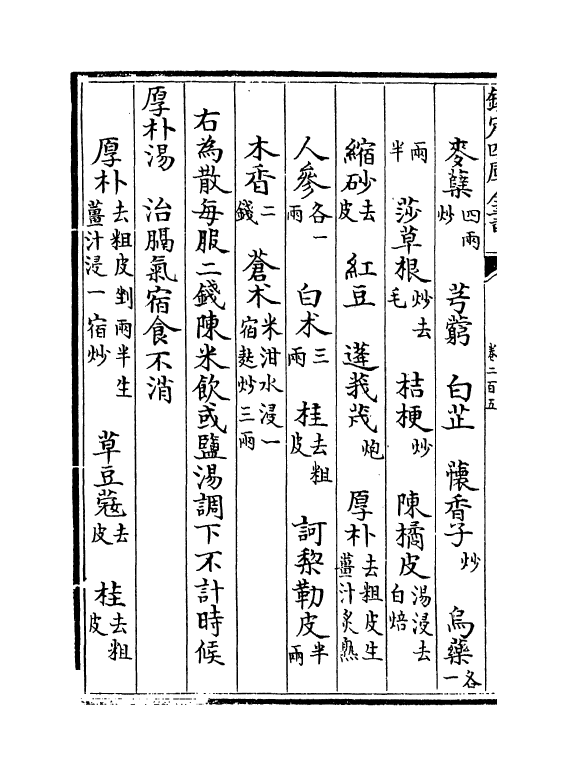 欽定四庫全書
卷二百五
麥櫱四兩炒 芎藭 白芷 懷香子炒 烏藥各一
兩半 莎草根炒去毛 桔梗炒 陳橘皮湯浸去白焙
縮砂去皮 紅豆 蓬莪茂炮 厚朴去粗皮生薑汁炙熟
人參各一兩 白朮三兩 桂去粗皮 訶棃勒皮半兩
木香二錢 蒼朮米泔水浸一宿麩炒三兩
右為散每服二錢陳米飲或鹽湯調下不計時候
厚朴湯 治膈氣宿食不消
厚朴去粗皮剉兩半生薑汁浸一宿炒 草豆蔻去皮 桂去粗皮